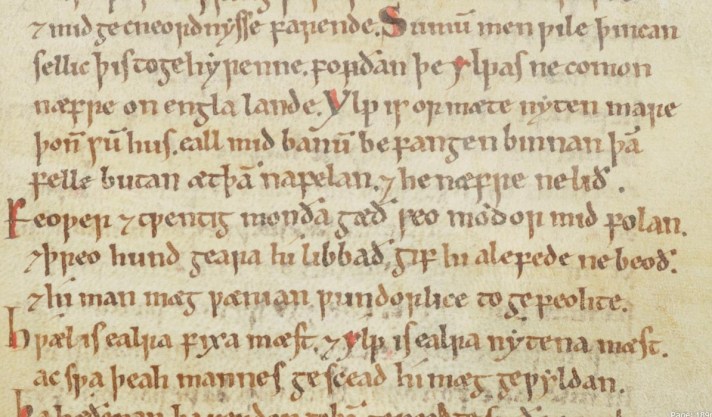 ⁊ mid gecneordnysse farende. Sumū men ƿile þincan
sellic þis to gehyrenne. forðan þe ylpas ne comon
næfre on engla lande. Ylp is ormæte nyten mare
þoñ sū hus. eall mid banū befangen binnan þā
felle butan æt þā nafelan. ⁊ he næfre ne lið.
Feoƿer ⁊ tƿentig monða gæð seo modor mid folan.
⁊ þreo hund geara hi libbað, gif hi alefede ne beoð.
⁊ hi man mæg ƿænian ƿundorlice to gefeohte.
Hƿæl is ealra fixa mæst. ⁊ ylp is ealra nytena mæst.
ac sƿa þeah mannes gescead hi mæg geƿyldan.